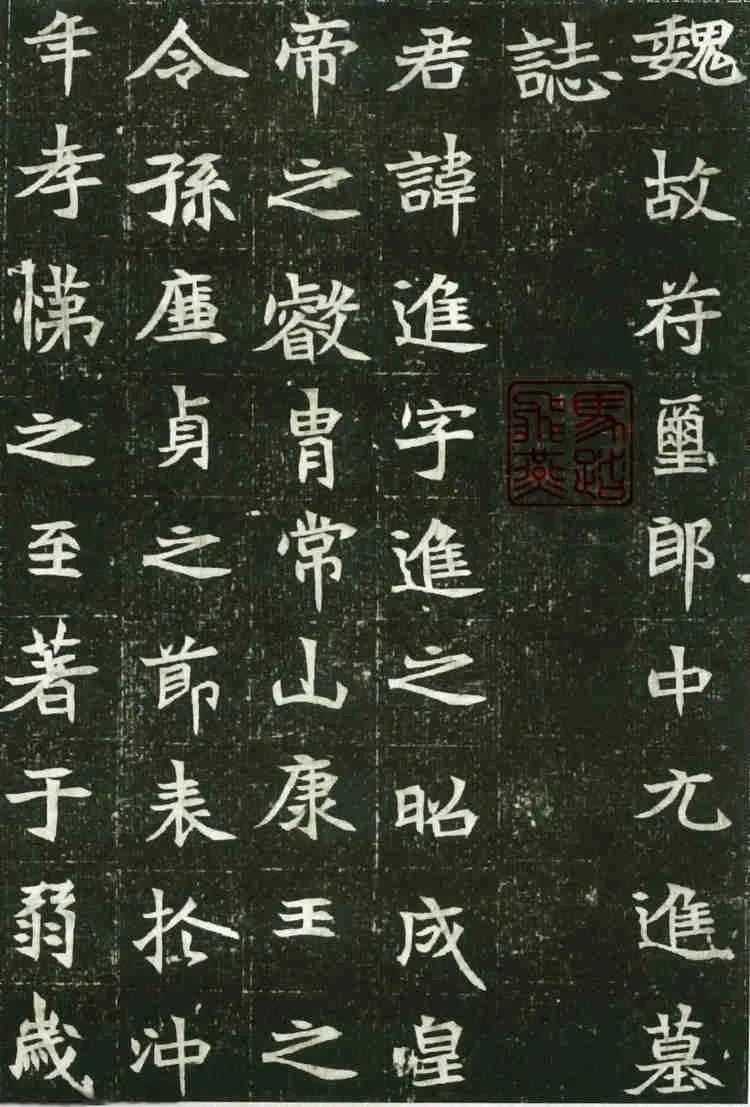 魏故苻璽郎中元進墓
誌
君諱進字進之昭成皇
帝之叡胄常山康王之
令孫廉貞之節表於沖
年孝悌之至著于弱歲